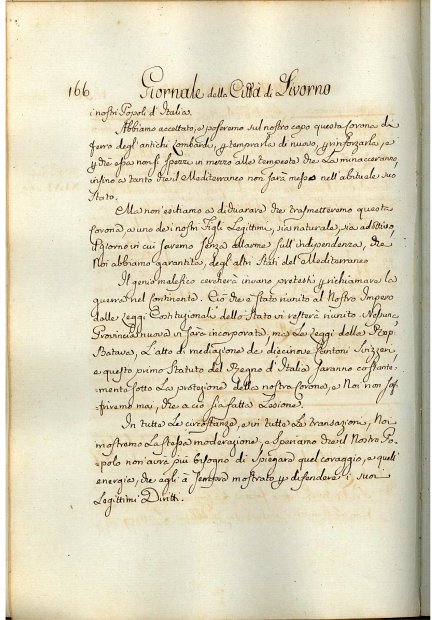 166 Giornale della Città di Livorno
i nostri Popoli d'Italia.
Abbiamo accettato, e poseremo sul nostro capo questa Corona di
ferro degl'antichi Lombardi p temprarla di nuovo, p rinforzarla, e
p che essa non si spezzi in mezzo alle tempeste che La minacceranno
infino a tanto che il Mediterraneo non sarà messo nell'abituale suo
Stato.
Ma non esitiamo a dichiarare che trasmetteremo questa
Corona a uno dei nostri Figli Legittimi, sia naturale, sia adottivo,
il giorno in cui saremo senza allarme sull'indipendenza, che
Noi abbiamo garantita, degl'altri Stati del Mediterraneo
Il genio malefico cercherà invano pretesti p richiamare la
guerra nel Continente. Ciò che è stato riunito al Nostro Impero
dalle Leggi Costituzionali dello Stato vi resterà riunito. Nessuna
Provincia nuova vi sarà incorporata, ma Le Leggi della Rep.
Batava, L'atto di mediazione de diecinove Cantoni Svizzeri,
e questo primo Statuto del Regno d'Italia saranno costante-
mente sotto La protezione della nostra Corona, e Noi non sof-
friremo mai, che a ciò sia fatta Lesione.
In tutte Le circostanze, e in tutte Le transazioni, Noi
mostremo La stessa moderazione, e speriamo che il Nostro Po-
polo non avrà più bisogno di spiegare quel coraggio, e quell'
energia, che egli à sempre mostrato p difendere i suoi
Legittimi Diritti.